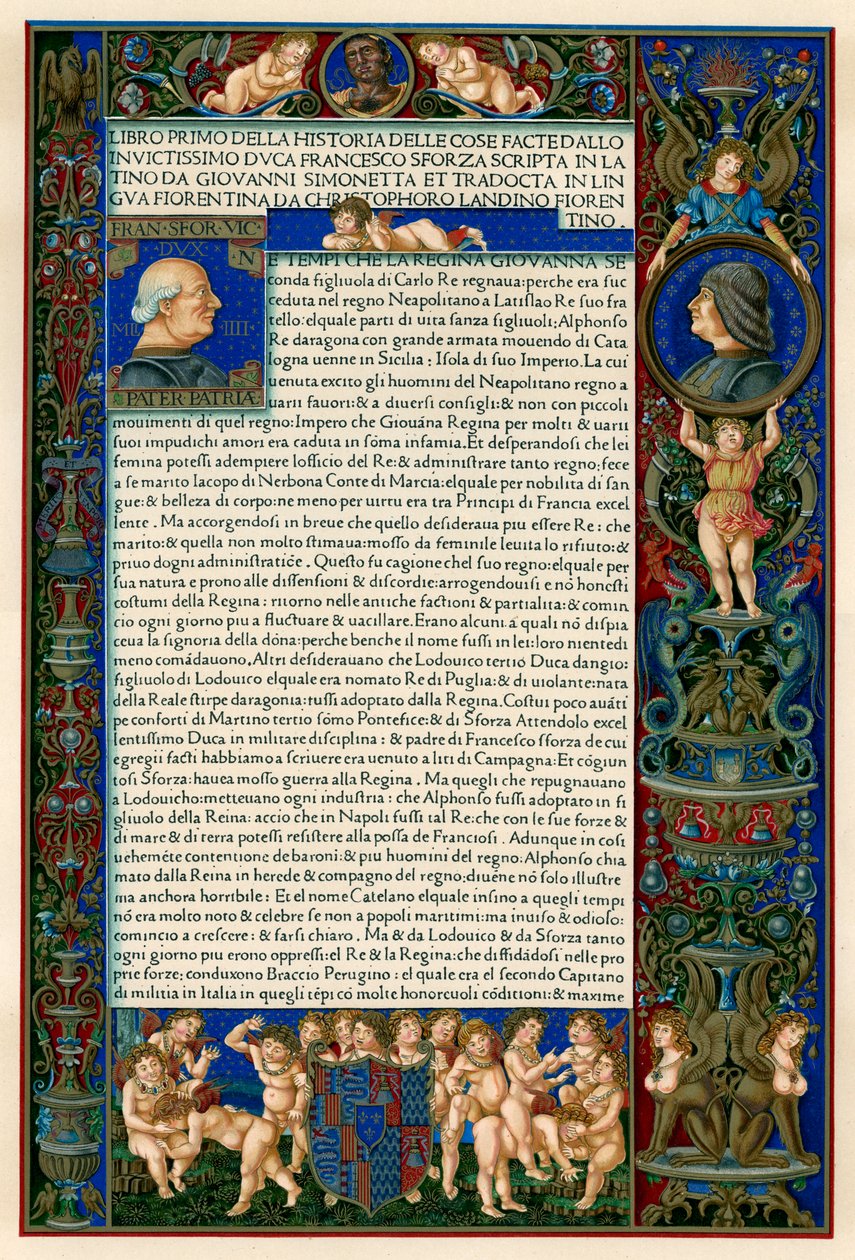 LIBRO PRIMO DELLA HISTORIA DELLE COSE FACTE DALLO
INVICTISSIMO DVCA FRANCESCO SFORZA SCRIPTA IN LA
TINO DA GIOVANNI SIMONETTA ET TRADOCTA IN LIN
GVA FIORENTINA DA CHRISTOPHORO LANDINO FIOREN
TINO .
FRAN·SFOR·VIC·
DVX·
N
MLI IIII·
PATER·PATRIÆ
E TEMPI CHE LA REGINA GIOVANNA SE
conda figliuola di Carlo Re regnaua:perche era suc
ceduta nel regno Neapolitano a Latislao Re suo fra
tello:elquale parti di uita sanza figliuoli:Alphonso
Re daragona con grande armata mouendo di Cata
logna uenne in Sicilia : Isola di suo Imperio.La cui
uenuta excito gli huomini del Neapolitano regno a
uarii fauori:& a diuersi consigli:& non con piccoli
mouimenti di quel regno:Impero che Giouãna Regina per molti & uarii
suoi impudichi amori era caduta in sõma infamia.Et desperandosi che lei
femina potessi adempiere lofficio del Re:& administrare tanto regno:fece
a se marito Iacopo di Nerbona Conte di Marcia:elquale per nobilita di san
gue:& belleza di corpo:ne meno per uirtu era tra Principi di Francia excel
lente . Ma accorgendosi in breue che quello desideraua piu essere Re : che
marito:& quella non molto stimaua:mosso da feminile leuita lo rifiuto:&
priuo dogni administratiõe . Questo fu cagione chel suo regno:elquale per
sua natura e prono alle dissensioni & discordie:arrogendouisi e nõ honesti
costumi della Regina : ritorno nelle antiche factioni & partialita:& comin
cio ogni giorno piu a fluctuare & uacillare.Erano alcuni a quali nõ dispia
ceua la signoria della dõna:perche benche il nome fussi in lei:loro nientedi
meno comãdauono.Altri desiderauano che Lodouico tertio Duca dangio:
figliuolo di Lodouico elquale era nomato Re di Puglia:& di uiolante:nata
della Reale stirpe daragonia:fussi adoptato dalla Regina.Costui poco auãti
pe conforti di Martino tertio sõmo Pontefice:& di Sforza Attendolo excel
lentissimo Duca in militare disciplina : & padre di Francesco sforza de cui
egregii facti habbiamo a scriuere era uenuto a liti di Campagna:Et cõgiun
tosi Sforza:hauea mosso guerra alla Regina . Ma quegli che repugnauano
a Lodouicho:metteuano ogni industria : che Alphonso fussi adoptato in fi
gliuolo della Reina: accio che in Napoli fussi tal Re:che con le sue forze &
di mare & di terra potessi resistere alla possa de Franciosi . Adunque in cosi
uehemẽte contentione de baroni:& piu huomini del regno:Alphonso chia
mato dalla Reina in herede & compagno del regno:diuẽne nõ solo illustre
ma anchora horribile : Et el nome Catelano elquale insino a quegli tempi
nõ era molto noto & celebre se non a popoli maritimi:ma inuiso & odioso:
comincio a crescere : & farsi chiaro . Ma & da Lodouico & da Sforza tanto
ogni giorno piu erono oppressi:el Re & la Regina:che diffidãdosi nelle pro
prie forze; conduxono Braccio Perugino : el quale era el secondo Capitano
di militia in Italia in quegli tẽpi cõ molte honoreuoli cõditioni:& maxime